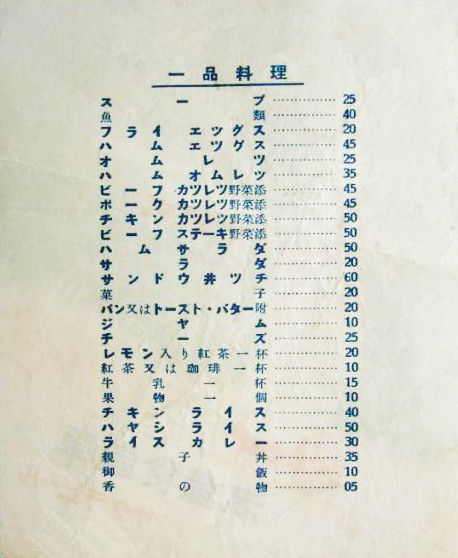 一品料理
スープ 25
魚類 40
フライエツグス 20
ハムエツグス 45
オムレツ 25
ハムオムレツ 35
ビーフカツレツ野菜添 45
ポークカツレツ野菜添 45
チキンカツレツ野菜添 50
ビーフステーキ野菜添 50
ハムサラダ 50
サラダ 20
サンドウ井ツチ 60
菓子 20
パン又はトースト・バター附 20
ジヤム 10
チーズ 25
レモン入り紅茶一杯 20
紅茶又は珈琲一杯 10
牛乳一杯 15
果物一個 10
チキンライス 40
ハヤシライス 50
ライスカレー 30
親子丼 35
御飯 10
香の物 05